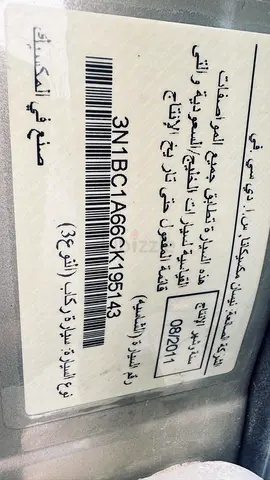 الشركة الصانعة: نيسان مكسيكانا, إس. أ. دي سي في
سنة وشهر الإنتاج
08/2011
هذه السيارة تطابق جميع المواصفات
القياسية لسيارات الخليج/السعودية والتي
قائمة المفعول حتى تاريخ الإنتاج
رقم السيارة (الشاسيه)
3N1BC1A66CK195143
نوع السيارة: سيارة ركاب (النوع 3)
صنع في المكسيك